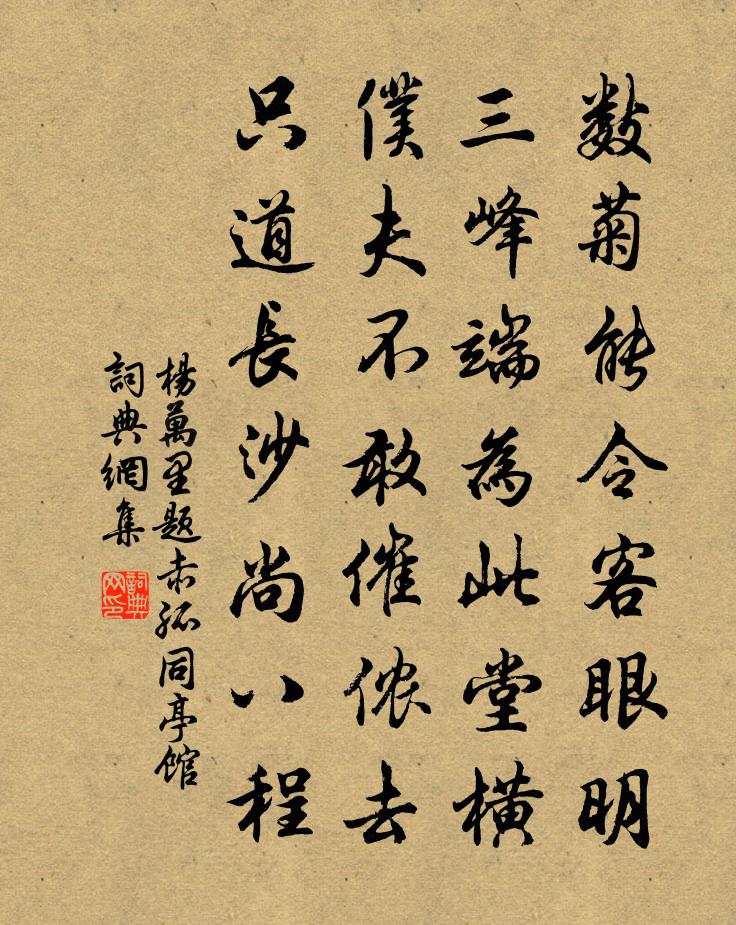 数菊能令客眼明
三峰端為此堂橫
僕夫不敢催侬去
只道長沙尚八程
楊萬里题赤孤同亭館
詞典網集
詞典網印